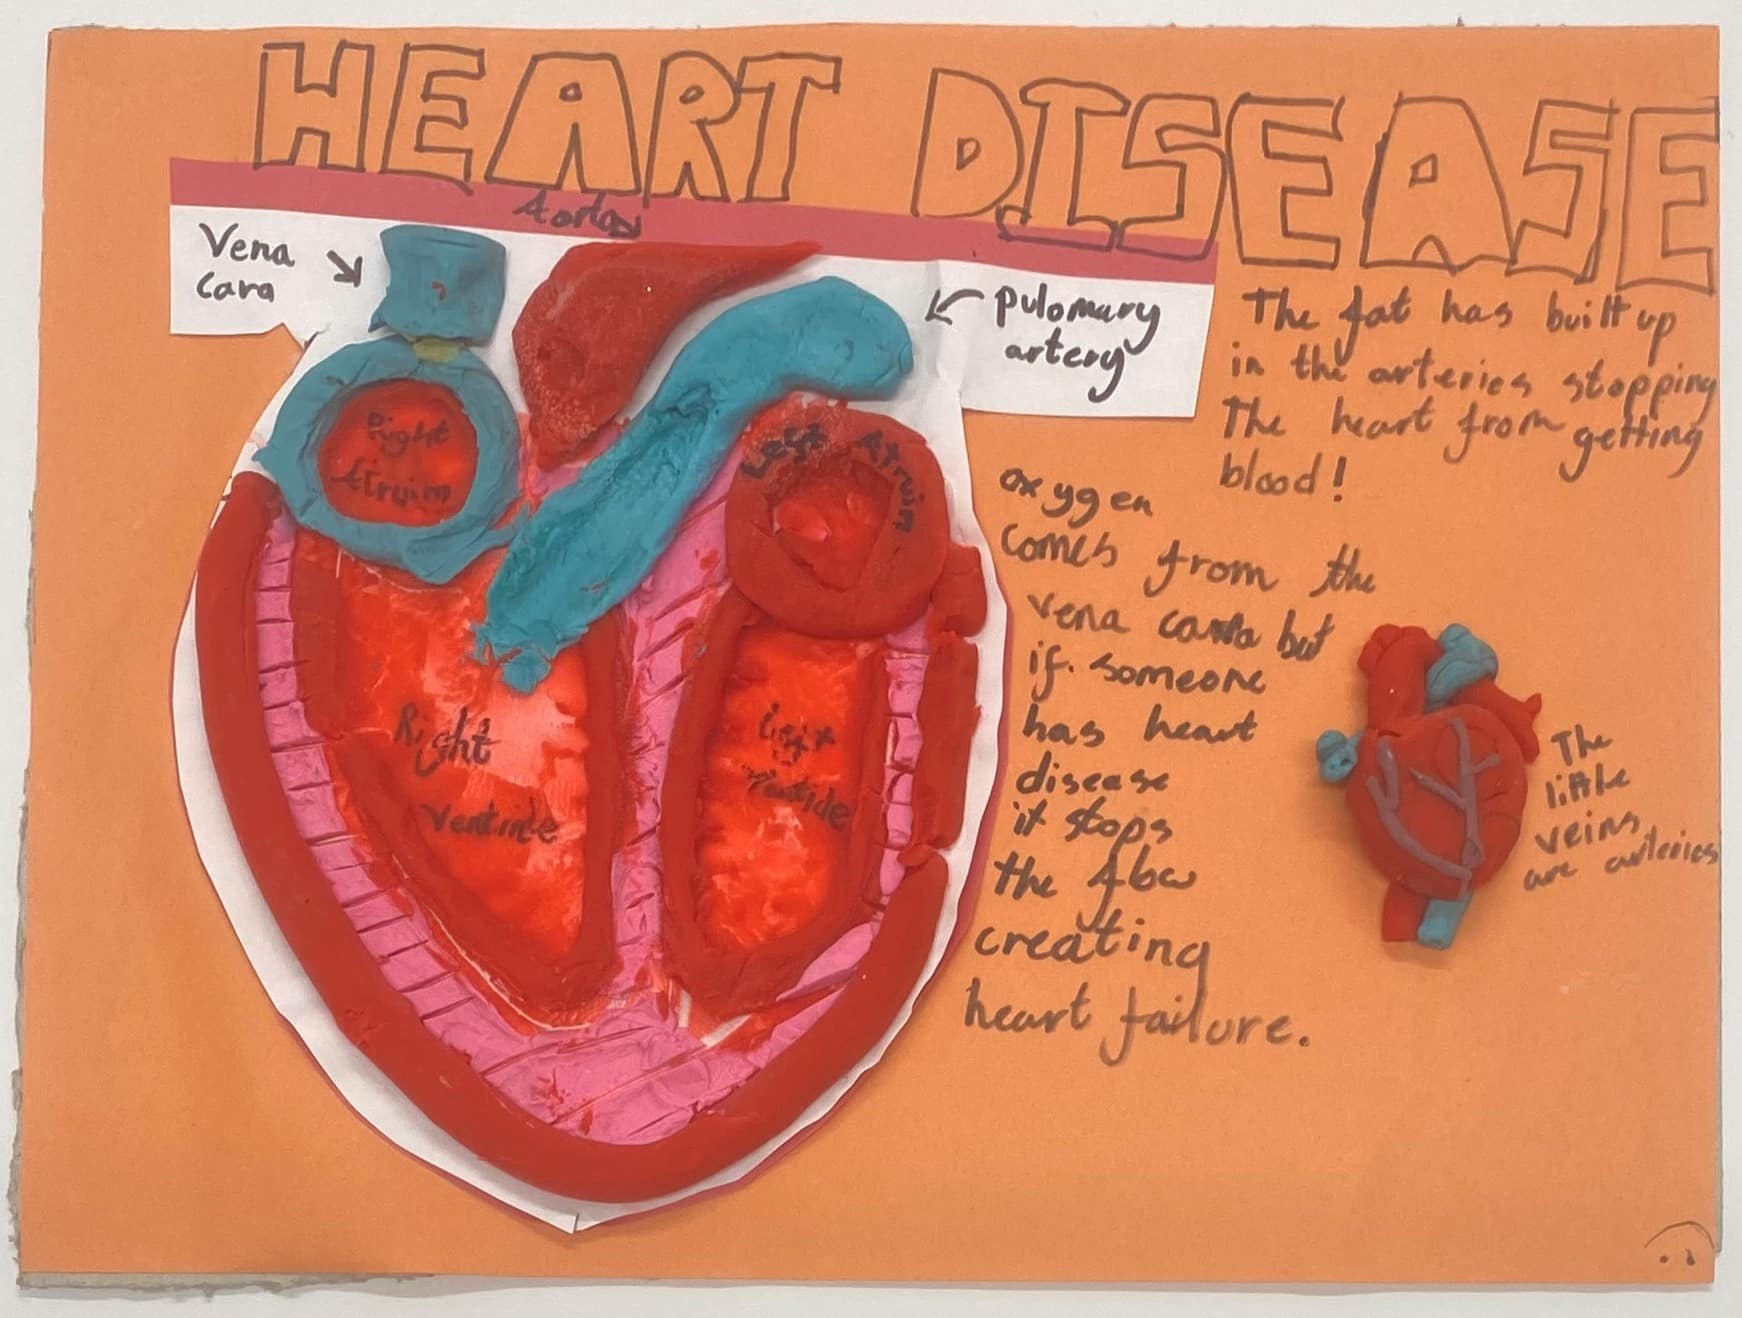 HEART DISEASE
Aorta
Vena
cara
pulomary
artery
Right
Atruim
Left Atruim
Right
Left
The fat has built up
in the arteries stopping
The heart from getting
blood!
oxygen
comes from the
vena but
if someone
has heart
disease
it stops
the flow
creating
heart failure.
The
little
veins
are arteries